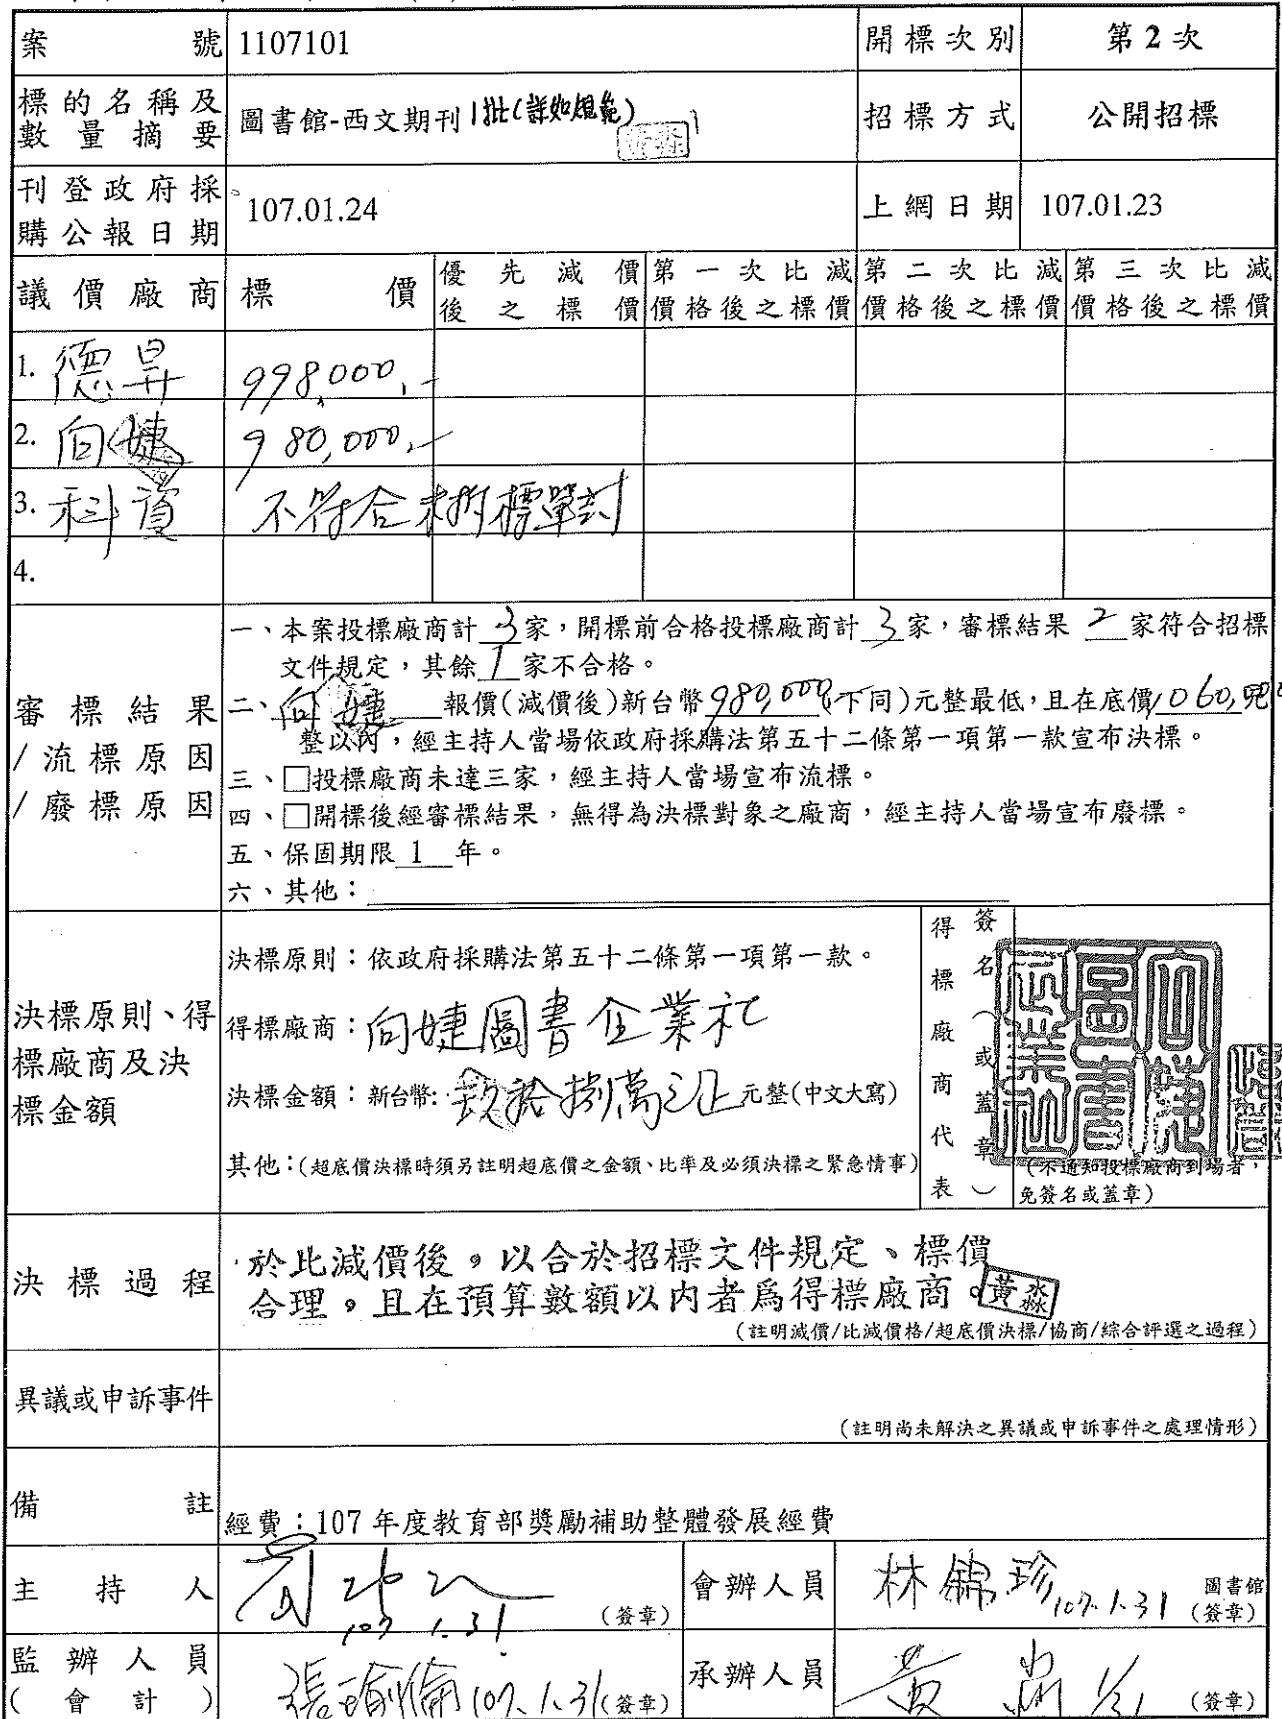 案號 1107101 開標次別 第2次
標的名稱及數量摘要 圖書館-西文期刊1批(詳如規範) 招標方式 公開招標
刊登政府採購公報日期 107.01.24 上網日期 107.01.23
議價廠商 標價 優先減價後之標價 第一次比減價格後之標價 第二次比減價格後之標價 第三次比減價格後之標價
1. 德昇 998,000.-
2. 向婕 980,000.-
3. 科資 不符合未拆標單封
4.
審標結果/流標原因/廢標原因
一、本案投標廠商計 3 家，開標前合格投標廠商計 3 家，審標結果 2 家符合招標
文件規定，其餘 1 家不合格。
二、向婕 報價(減價後)新台幣 980,000 (下同)元整最低，且在底價 1060,000
整以內，經主持人當場依政府採購法第五十二條第一項第一款宣布決標。
三、□投標廠商未達三家，經主持人當場宣布流標。
四、□開標後經審標結果，無得為決標對象之廠商，經主持人當場宣布廢標。
五、保固期限 1 年。
六、其他：
決標原則、得標廠商及決標金額
決標原則：依政府採購法第五十二條第一項第一款。
得標廠商：向婕圖書企業社
決標金額：新台幣：玖拾捌萬元正元整(中文大寫)
其他：(超底價決標時須另註明超底價之金額、比率及必須決標之緊急情事)
得標廠商代表
簽名(或蓋章)
向婕圖書企業社
(不通知投標廠商到場者，
免簽名或蓋章)
決標過程
於比減價後，以合於招標文件規定、標價
合理，且在預算數額以內者為得標廠商。黃淼
(註明減價/比減價格/超底價決標/協商/綜合評選之過程)
異議或申訴事件
(註明尚未解決之異議或申訴事件之處理情形)
備註 經費：107年度教育部獎勵補助整體發展經費
主持人 107.1.31 (簽章) 會辦人員 林錦珍 107.1.31 圖書館(簽章)
監辦人員(會計) 張瑜倫 107.1.31 (簽章) 承辦人員 黃 1/31 (簽章)